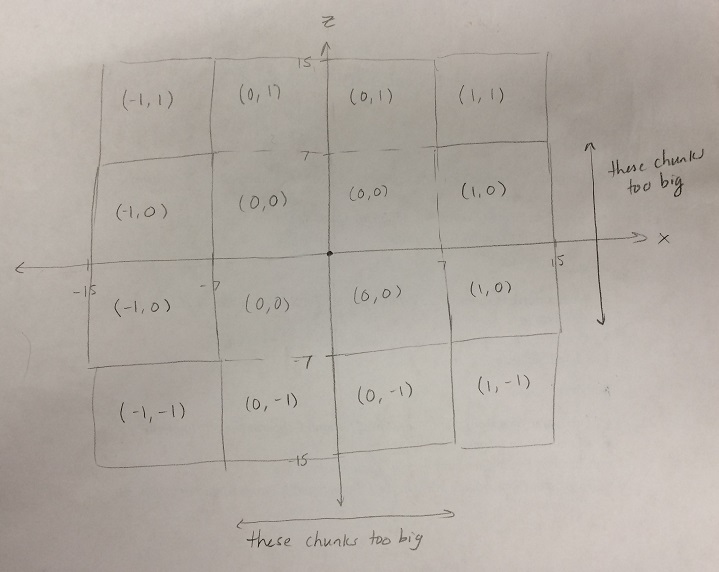 Z
15
(-1, 1) (0, 1) (0, 1) (1, 1)
7
these chunks
too big
(-1, 0) (0,0) (0,0) (1, 0)
X
-15 -7 7 15
(-1, 0) (0,0) (0,0) (1, 0)
-7
(-1, -1) (0, -1) (0, -1) (1, -1)
-15
these chunks too big